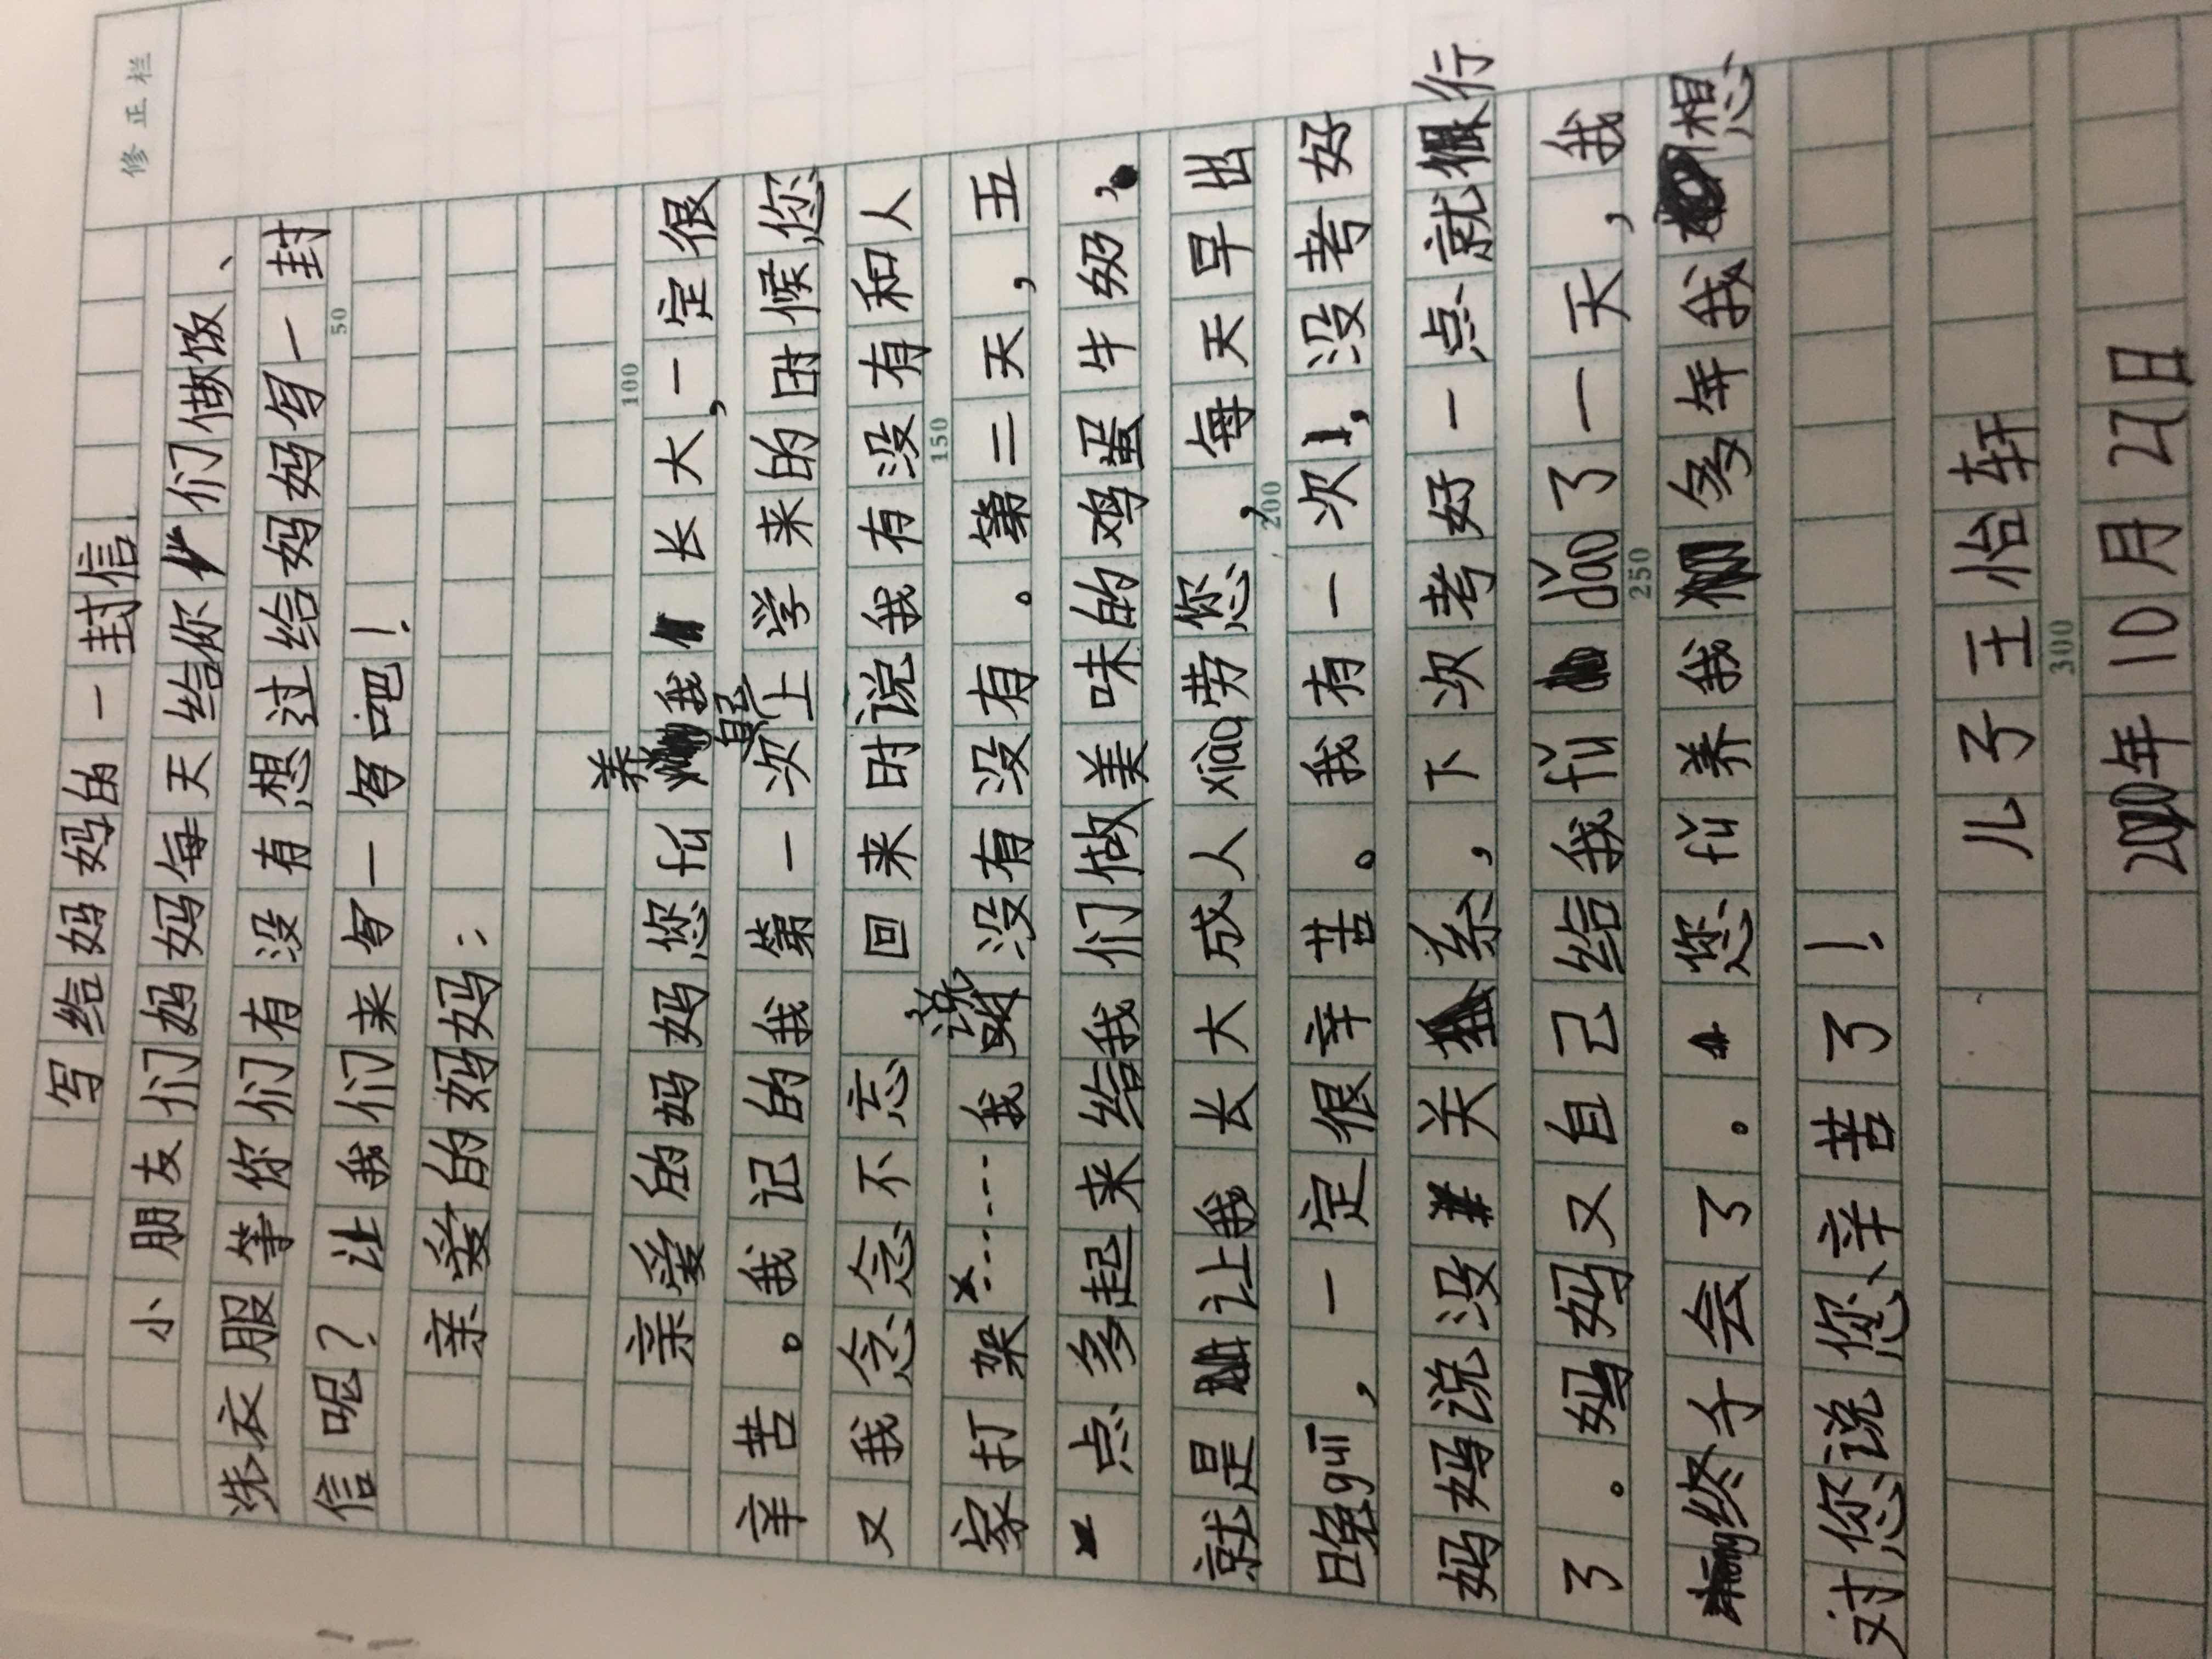 修正栏
写给妈妈的一封信
小朋友们妈妈每天给你们做饭、
洗衣服等你们有没有想过给妈妈写一封
50
信呢？让我们来写一写吧！
亲爱的妈妈：
100
亲爱的妈妈您fǔ养我长大，一定很
辛苦。我记的我第一次上学来的时候，您
又我念念不忘，回来时说我有没有和人
150
家打架……我说没有没有。第二天，五
点多起来给我们做美味的鸡蛋牛奶，
就是让我长大成人xiào劳您，每天早出
200
晚guī，一定很辛苦。我有一次，没考好
妈妈说没关系，下次考好一点就行
了。妈妈又自己给我fǔdǎo了一天，我
250
终于会了。您fǔ养我多年我想
对您说您辛苦了！
儿子王怡轩
300
2020年10月27日